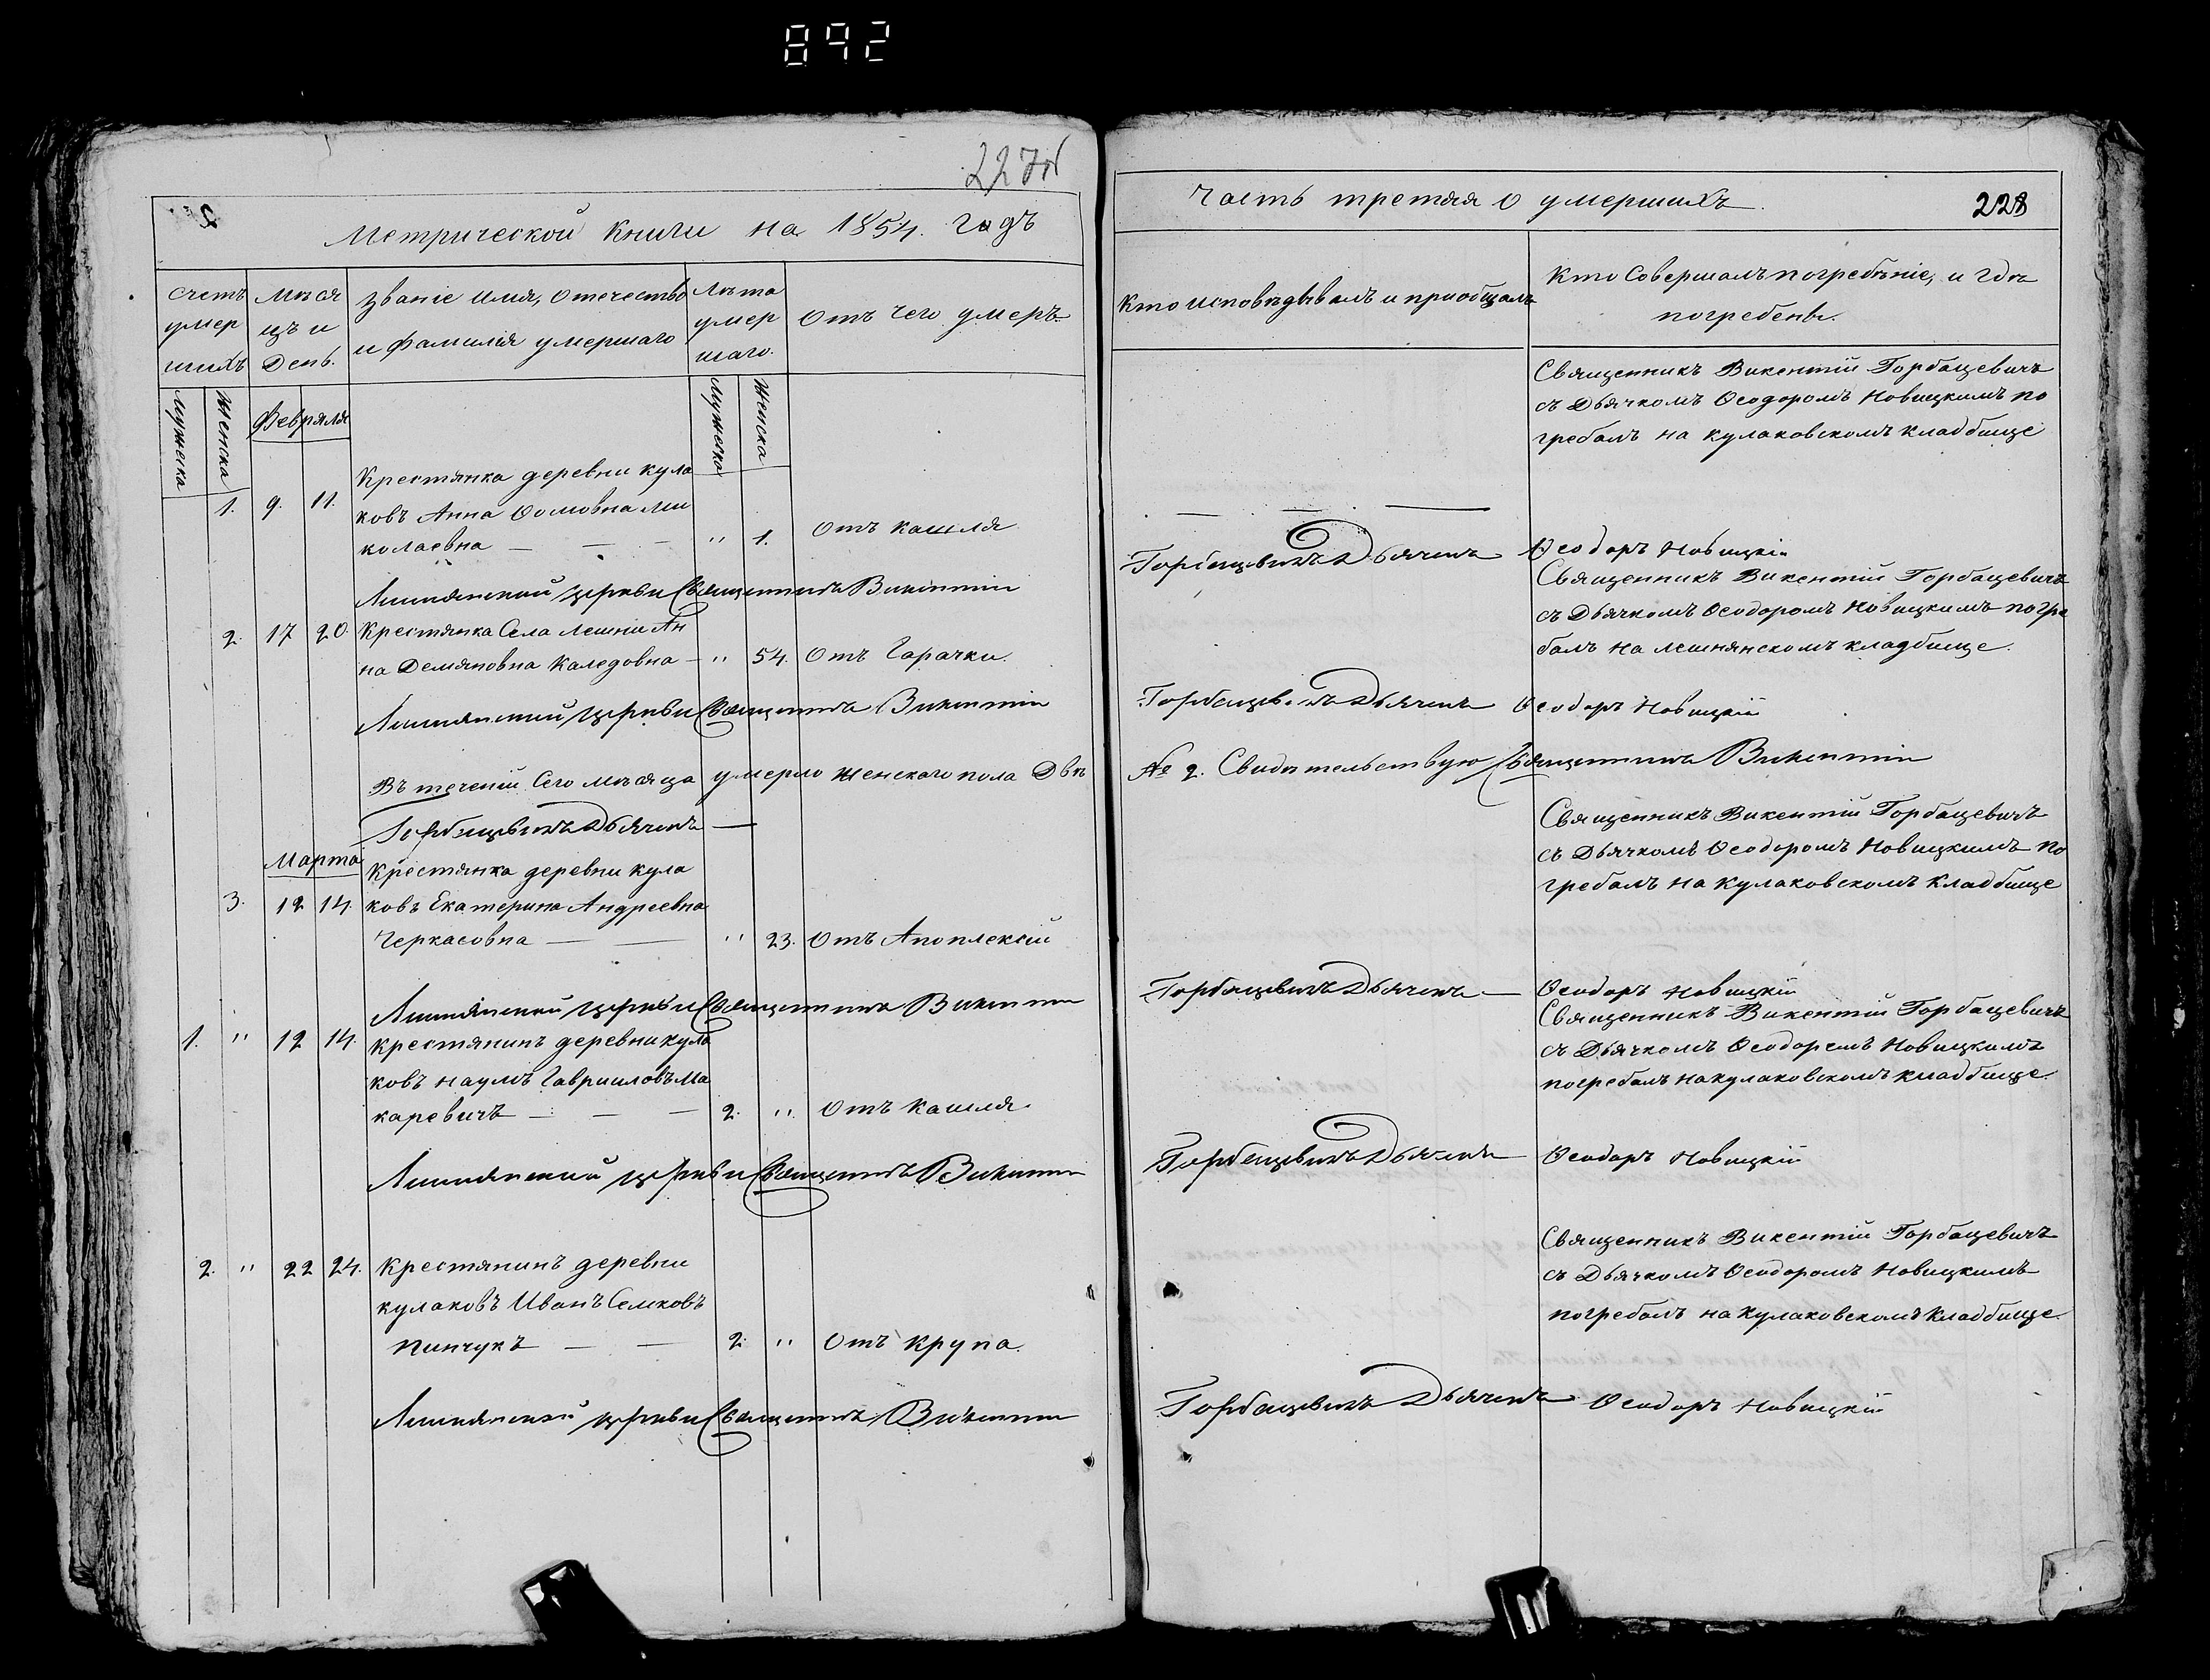 892
227об
2
Метрической книги на 1854. годъ
Счетъ умер шихъ
Мѣся цъ и День.
Званіе имя, отечество и фамилія умершаго
Лѣта умер шаго.
Отъ чего умеръ.
Мужеска
Женска
Февраля
Мужеска
Женска
Крестянка деревни кула
1. 9. 11. ковъ Анна Ѳомовна Ми
колаевна — — — " 1. Отъ кашля
Лешнянской церкви Священникъ Викентій
2. 17 20. Крестянка Села Лешни Ан
на Демяновна Каледовна — " 54. Отъ Гарачки.
Лешнянской церкви Священникъ Викентій
Въ теченіи Сего мѣсяца умерло женскаго пола Двѣ
Горбацевичъ Дьячекъ —
Марта
Крестянка деревни кула
3. 12 14. ковъ Екатерина Андреевна
Черкасовна — — " 23. Отъ Апоплексіи
Лешнянской церкви Священникъ Викентій
1. " 12 14. Крестянинъ деревни кула
ковъ Наумъ Гавриловъ Ма
каревичъ — — — 2. " Отъ кашля
Лешнянской церкви Священникъ Викентій
2. " 22 24. Крестянинъ деревни
кулаковъ Иванъ Семковъ
Пинчукъ — — 2. " Отъ крупа.
Лешнянской церкви Священникъ Викентій
Часть третяя о умершихъ.
228
Кто исповѣдывалъ и приобщалъ
Кто Совершалъ погребѣніе, и гдѣ
погребены.
Священникъ Викентій Горбацевичъ
съ Дьячкомъ Ѳеодоромъ Новицкимъ по
гребалъ на кулаковскомъ кладбище
Горбацевичъ Дьячекъ Ѳеодоръ Новицкій
Священникъ Викентій Горбацевичъ
съ Дьячкомъ Ѳеодоромъ Новицкимъ погре
балъ на лешнянскомъ кладбище.
Горбацевичъ Дьячекъ Ѳеодоръ Новицкій
№ 2. Свидѣтельствую Священникъ Викентій
Священникъ Викентій Горбацевичъ
съ Дьячкомъ Ѳеодоромъ Новицкимъ по
гребалъ на кулаковскомъ кладбище
Горбацевичъ Дьячекъ — Ѳеодоръ Новицкій
Священникъ Викентій Горбацевичъ
съ Дьячкомъ Ѳеодоромъ Новицкимъ
погребалъ на кулаковскомъ кладбище.
Горбацевичъ Дьячекъ Ѳеодоръ Новицкій
Священникъ Викентій Горбацевичъ
съ Дьячкомъ Ѳеодоромъ Новицкимъ
погребалъ на кулаковскомъ кладбище.
Горбацевичъ Дьячекъ Ѳеодоръ Новицкій